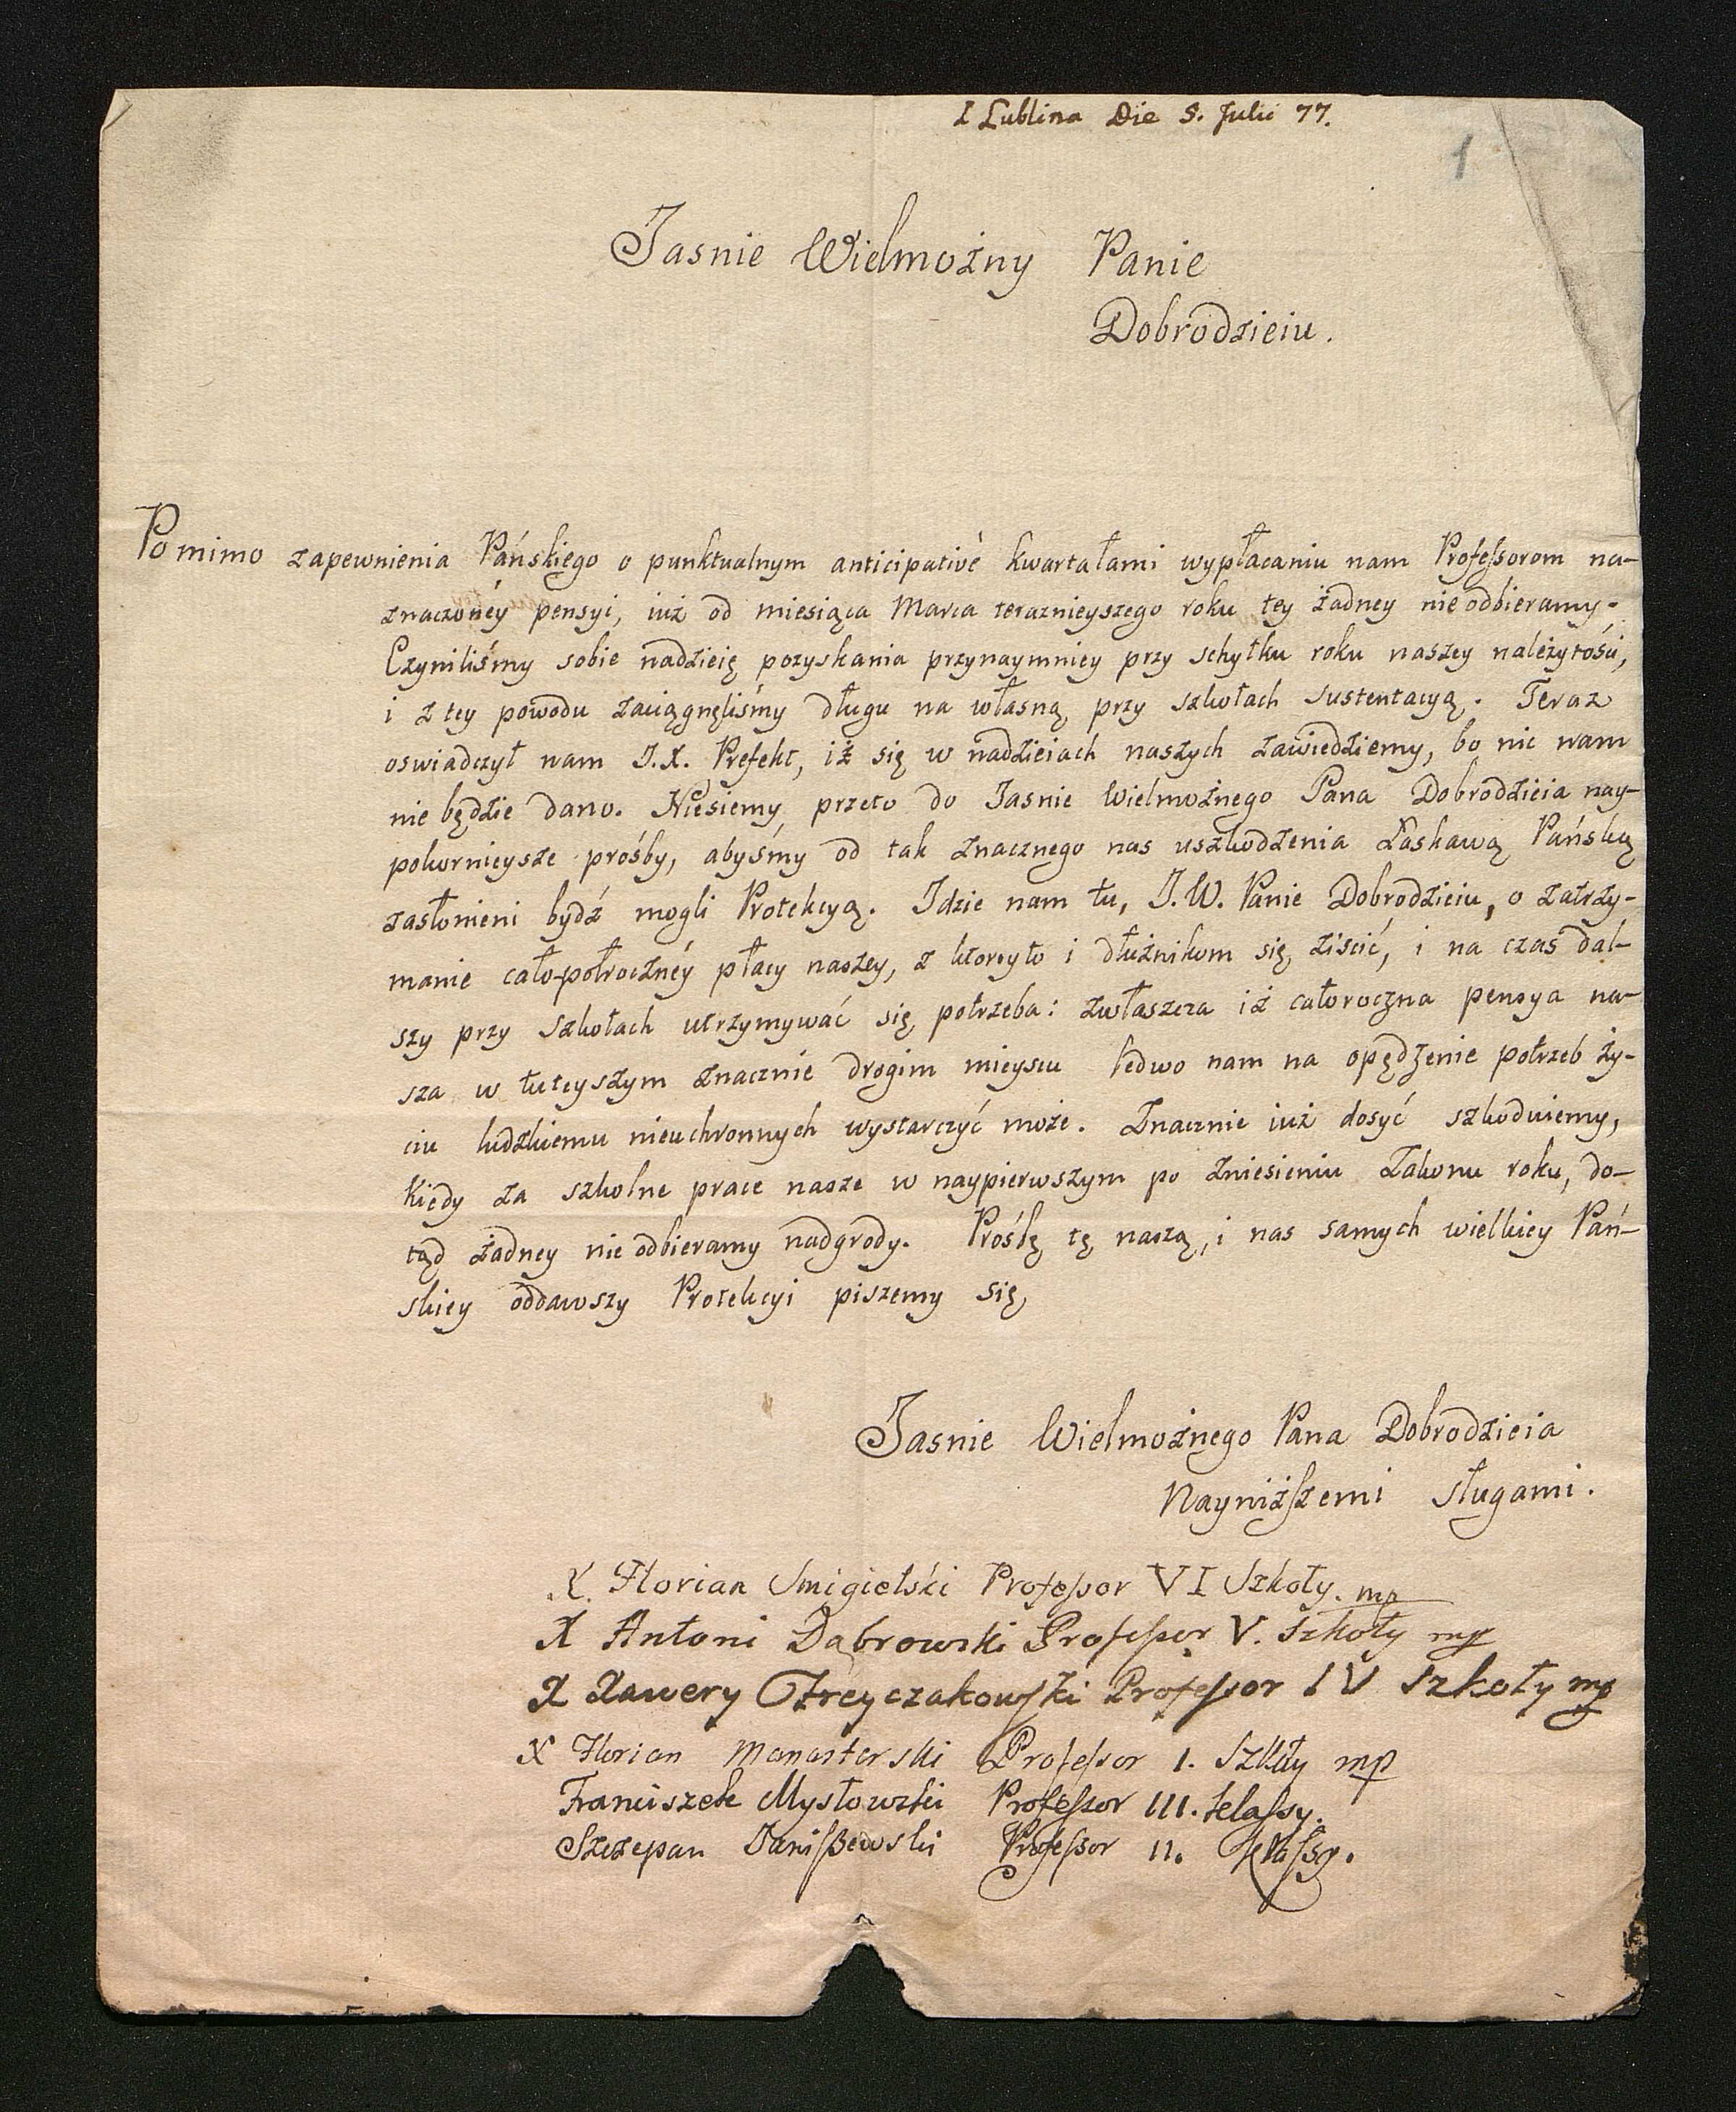 Z Lublina Die 5. Julii 77.
1
Jasnie Wielmożny Panie
Dobrodzieiu.
Pomimo zapewnienia Pańskiego o punktualnym anticipativè kwartałami wypłacaniu nam Professorom na-
znaczonéy pensyi, iuż od miesiąca Marca teraznieyszego roku tey żadney nie odbieramy.
Czyniliśmy sobie nadzieię pozyskania przynaymniey przy schyłku roku naszey należytości,
i z tey powodu zaciągnęliśmy długu na własną przy szkołach sustentacyą. Teraz
oswiadczył nam J.X. Prefekt, iż się w nadzieiach naszych zawiedziemy, bo nic nam
nie będzie dano. Niesiemy przeto do Jasnie Wielmożnego Pana Dobrodzieia nay-
pokornieysze prośby, abyśmy od tak znacznego nas uszkodzenia Łaskawą Pańską
zasłonieni bydź mogli Protekcyą. Idzie nam tu, J.W. Panie Dobrodzieiu, o zatrzy-
manie cało-półrocznéy płacy naszey, z ktoreyto i dłużnikom się ziścić, i na czas dal-
szy przy szkołach utrzymywać się potrzeba: zwłaszcza iż całoroczna pensya na-
sza w tuteyszym znacznie drogim mieyscu ledwo nam na opędzenie potrzeb ży-
ciu ludzkiemu nieuchronnych wystarczyć może. Znacznie iuż dosyć szkoduiemy,
kiedy za szkolne prace nasze w naypierwszym po zniesieniu Zakonu roku, do-
tąd żadney nie odbieramy nadgrody. Prośbę tę naszą, i nas samych wielkiey Pań-
skiey oddawszy Protekcyi piszemy się
Jasnie Wielmożnego Pana Dobrodzieia
Nayniższemi sługami.
X. Florian Smigielski Professor VI Szkoły. mp
X Antoni Dąbrowski Professor V. Szkoły mp
X Xawery Professor IV Szkoły mp
X Florian Monasterski Professor I. Szkoły mp
Franciszek Mysłowski Professor III. klassy.
Szczepan Janiszewski Professor II. klassy.